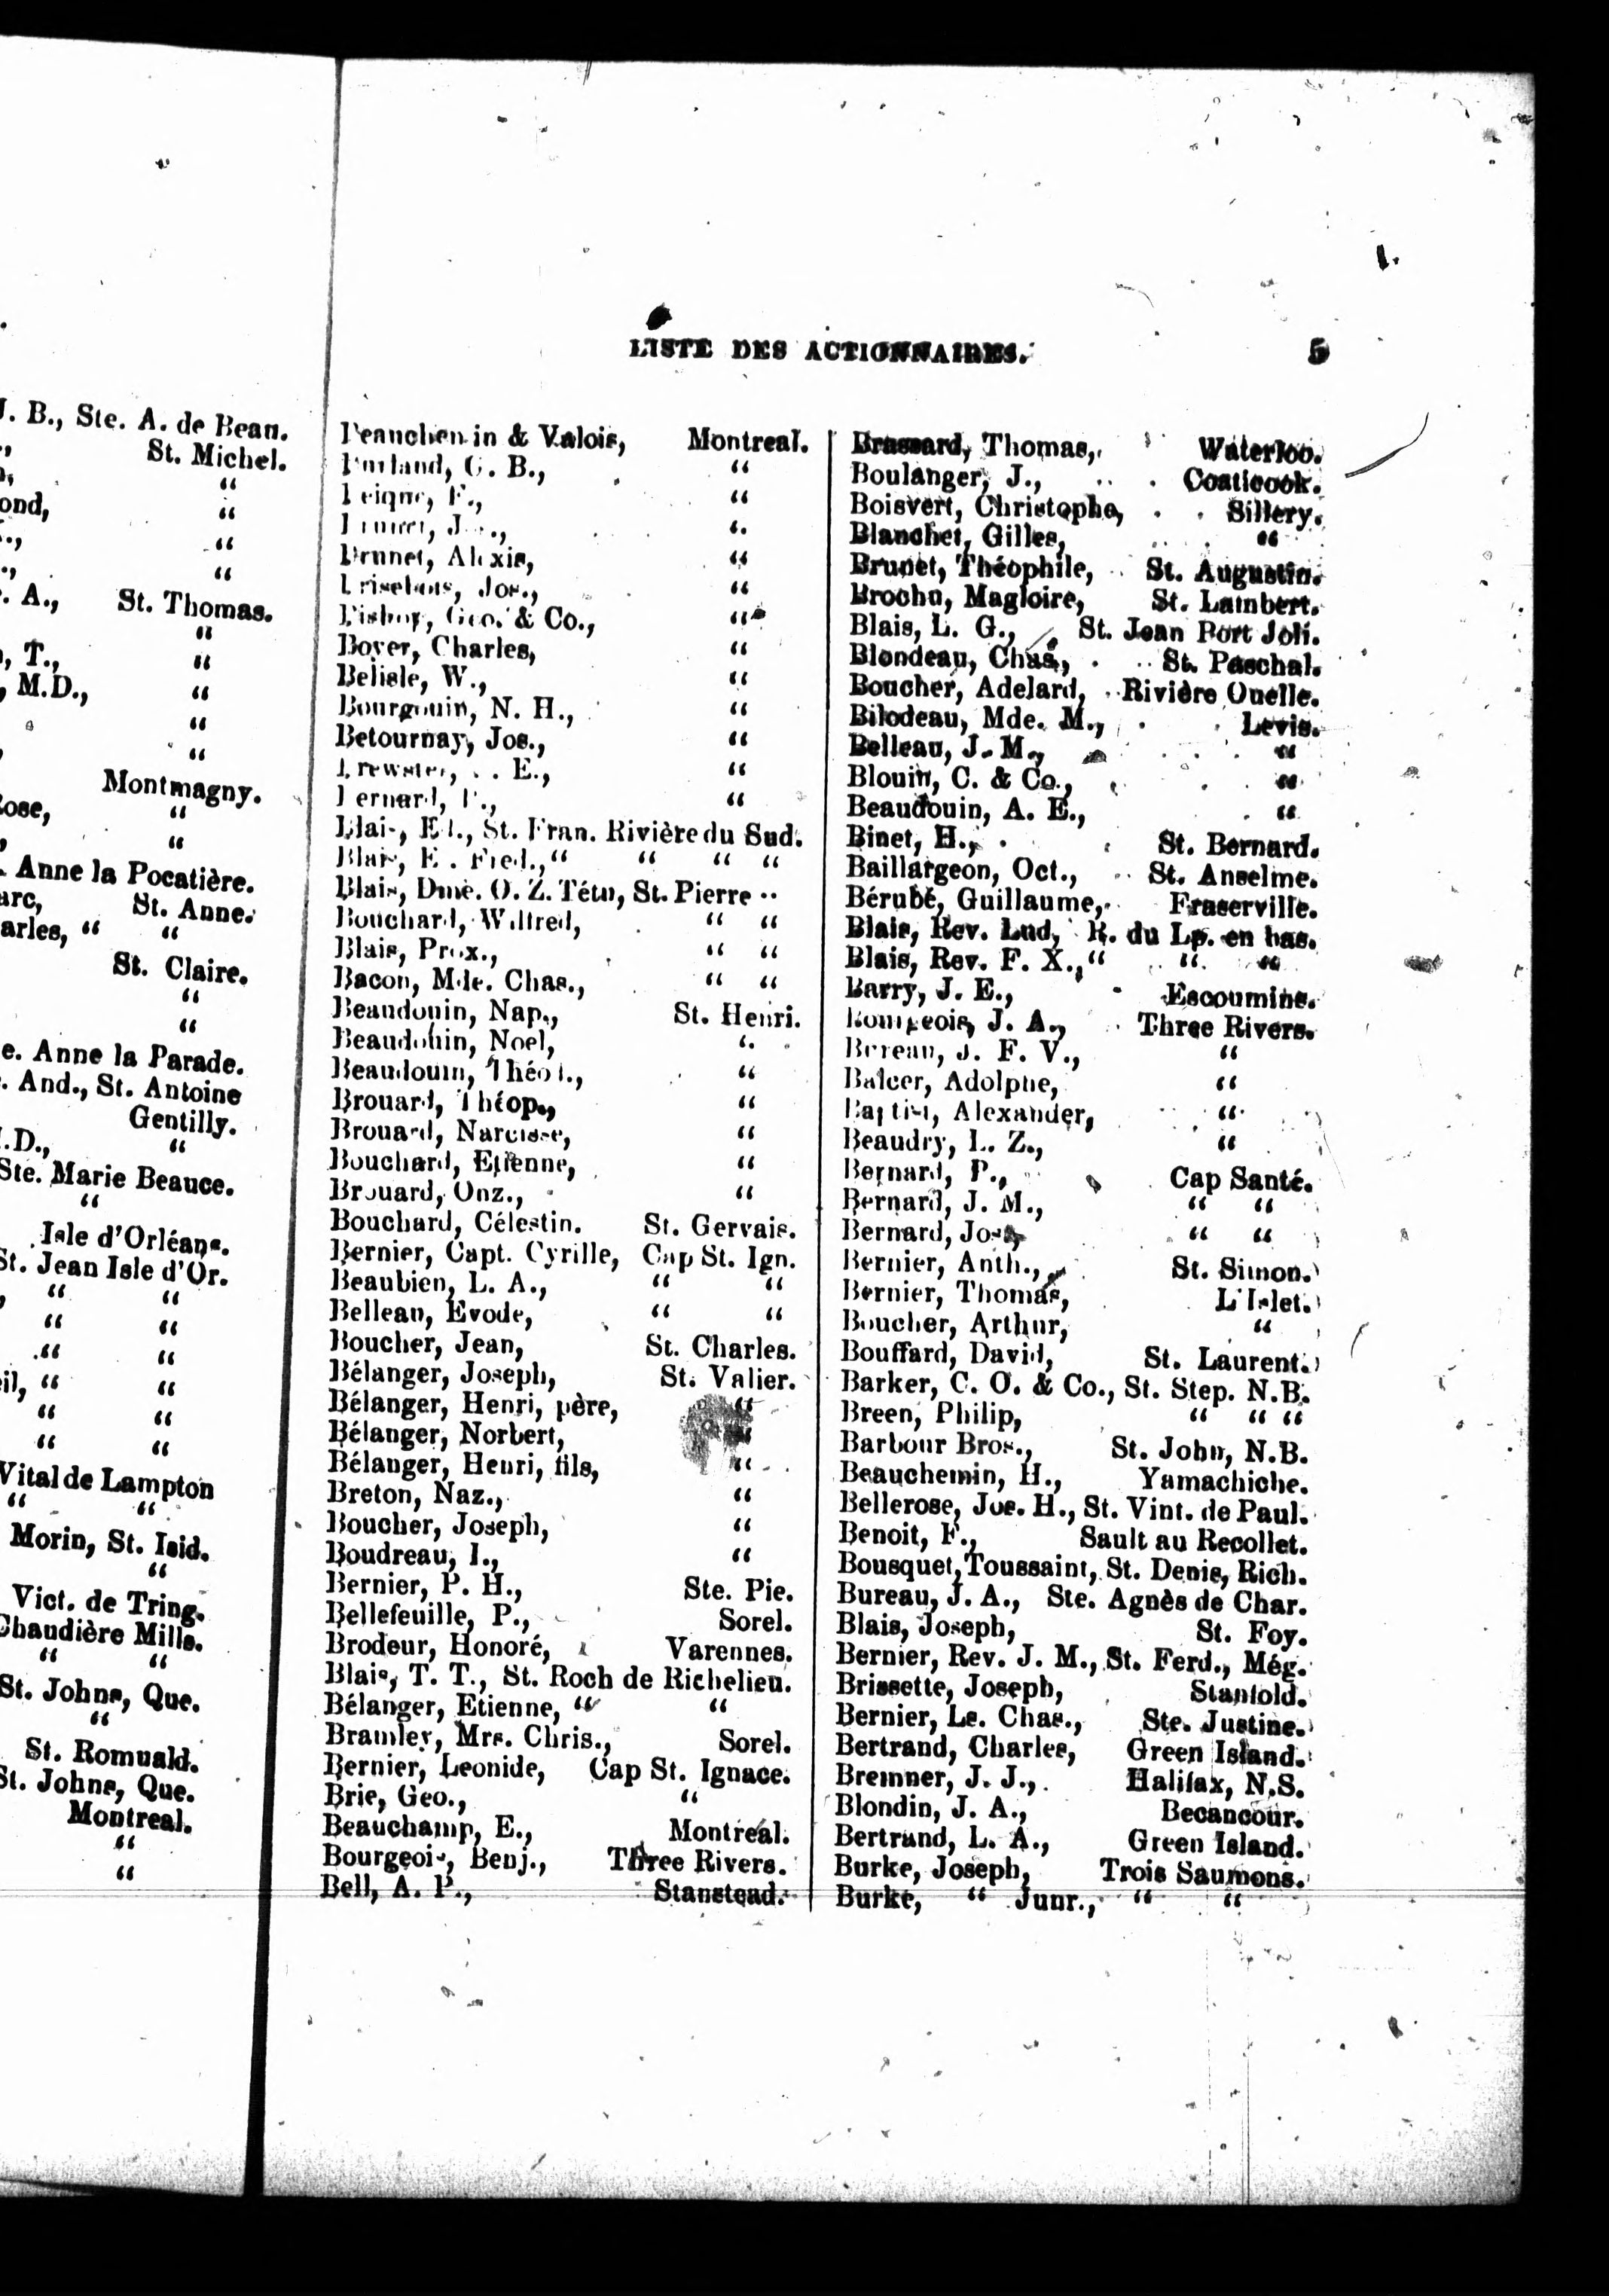 J. B., Ste. A. de Beau.
St. Michel.
"
ond, "
"
"
. A., St. Thomas.
"
, T., "
, M.D., "
"
"
Montmagny.
ose, "
"
Anne la Pocatière.
arc, St. Anne.
arles, " "
St. Claire.
"
"
e. Anne la Parade.
. And., St. Antoine
Gentilly.
.D., "
Ste. Marie Beauce.
"
Isle d'Orléans.
St. Jean Isle d'Or.
" "
" "
" "
il, " "
" "
" "
Vital de Lampton
" "
Morin, St. Isid.
"
Vict. de Tring.
Chaudière Mills.
" "
St. Johns, Que.
"
St. Romuald.
St. Johns, Que.
Montreal.
"
"
LISTE DES ACTIONNAIRES. 5
Beauchemin & Valois, Montreal.
Burland, G. B., "
"
"
Brunet, Alexis, "
Brisebois, Jos., "
Bishop, Geo. & Co., "
Boyer, Charles, "
Belisle, W., "
Bourgouin, N. H., "
Betournay, Jos., "
Brewster, E., "
Bernard, P., "
Blais, Ed., St. Fran. Rivière du Sud.
Blais, E. Fred., " " " "
Blais, Dme. O. Z. Tétu, St. Pierre "
Bouchard, Wilfred, " "
Blais, Prox., " "
Bacon, Mde. Chas., " "
Beaudouin, Nap., St. Henri.
Beaudouin, Noel, "
Beaudouin, Théop., "
Brouard, Théop., "
Brouard, Narcisse, "
Bouchard, Etienne, "
Brouard, Onz., "
Bouchard, Célestin. St. Gervais.
Bernier, Capt. Cyrille, Cap St. Ign.
Beaubien, L. A., " "
Belleau, Evode, " "
Boucher, Jean, St. Charles.
Bélanger, Joseph, St. Valier.
Bélanger, Henri, père, "
Bélanger, Norbert, "
Bélanger, Henri, fils, "
Breton, Naz., "
Boucher, Joseph, "
Boudreau, I., "
Bernier, P. H., Ste. Pie.
Bellefeuille, P., Sorel.
Brodeur, Honoré, Varennes.
Blais, T. T., St. Roch de Richelieu.
Bélanger, Etienne, " "
Bramley, Mrs. Chris., Sorel.
Bernier, Leonide, Cap St. Ignace.
Brie, Geo., "
Beauchamp, E., Montréal.
Bourgeois, Benj., Three Rivers.
Bell, A. P., Stanstead.
Brassard, Thomas, Waterloo.
Boulanger, J., Coaticook.
Boisvert, Christophe, Sillery.
Blanchet, Gilles, "
Brunet, Théophile, St. Augustin.
Brochu, Magloire, St. Lambert.
Blais, L. G., St. Jean Port Joli.
Blondeau, Chas., St. Paschal.
Boucher, Adelard, Rivière Ouelle.
Bilodeau, Mde. M., Levis.
Belleau, J. M., "
Blouin, C. & Co., "
Beaudouin, A. E., "
Binet, H., St. Bernard.
Baillargeon, Oct., St. Anselme.
Bérubé, Guillaume, Fraserville.
Blais, Rev. Lud, R. du Lp. en bas.
Blais, Rev. F. X., " " "
Barry, J. E., Escoumins.
Bourgeois, J. A., Three Rivers.
Bureau, J. F. V., "
Balcer, Adolphe, "
Baptist, Alexander, "
Beaudry, L. Z., "
Bernard, P., Cap Santé.
Bernard, J. M., " "
Bernard, Jos., " "
Bernier, Anth., St. Simon.
Bernier, Thomas, L'Islet.
Boucher, Arthur, "
Bouffard, David, St. Laurent.
Barker, C. O. & Co., St. Step. N.B.
Breen, Philip, " " "
Barbour Bros., St. John, N.B.
Beauchemin, H., Yamachiche.
Bellerose, Jos. H., St. Vint. de Paul.
Benoit, F., Sault au Recollet.
Bousquet, Toussaint, St. Denis, Rich.
Bureau, J. A., Ste. Agnès de Char.
Blais, Joseph, St. Foy.
Bernier, Rev. J. M., St. Ferd., Még.
Brissette, Joseph, Stanfold.
Bernier, Ls. Chas., Ste. Justine.
Bertrand, Charles, Green Island.
Bremner, J. J., Halifax, N.S.
Blondin, J. A., Becancour.
Bertrand, L. A., Green Island.
Burke, Joseph, Trois Saumons.
Burke, " Junr., " "